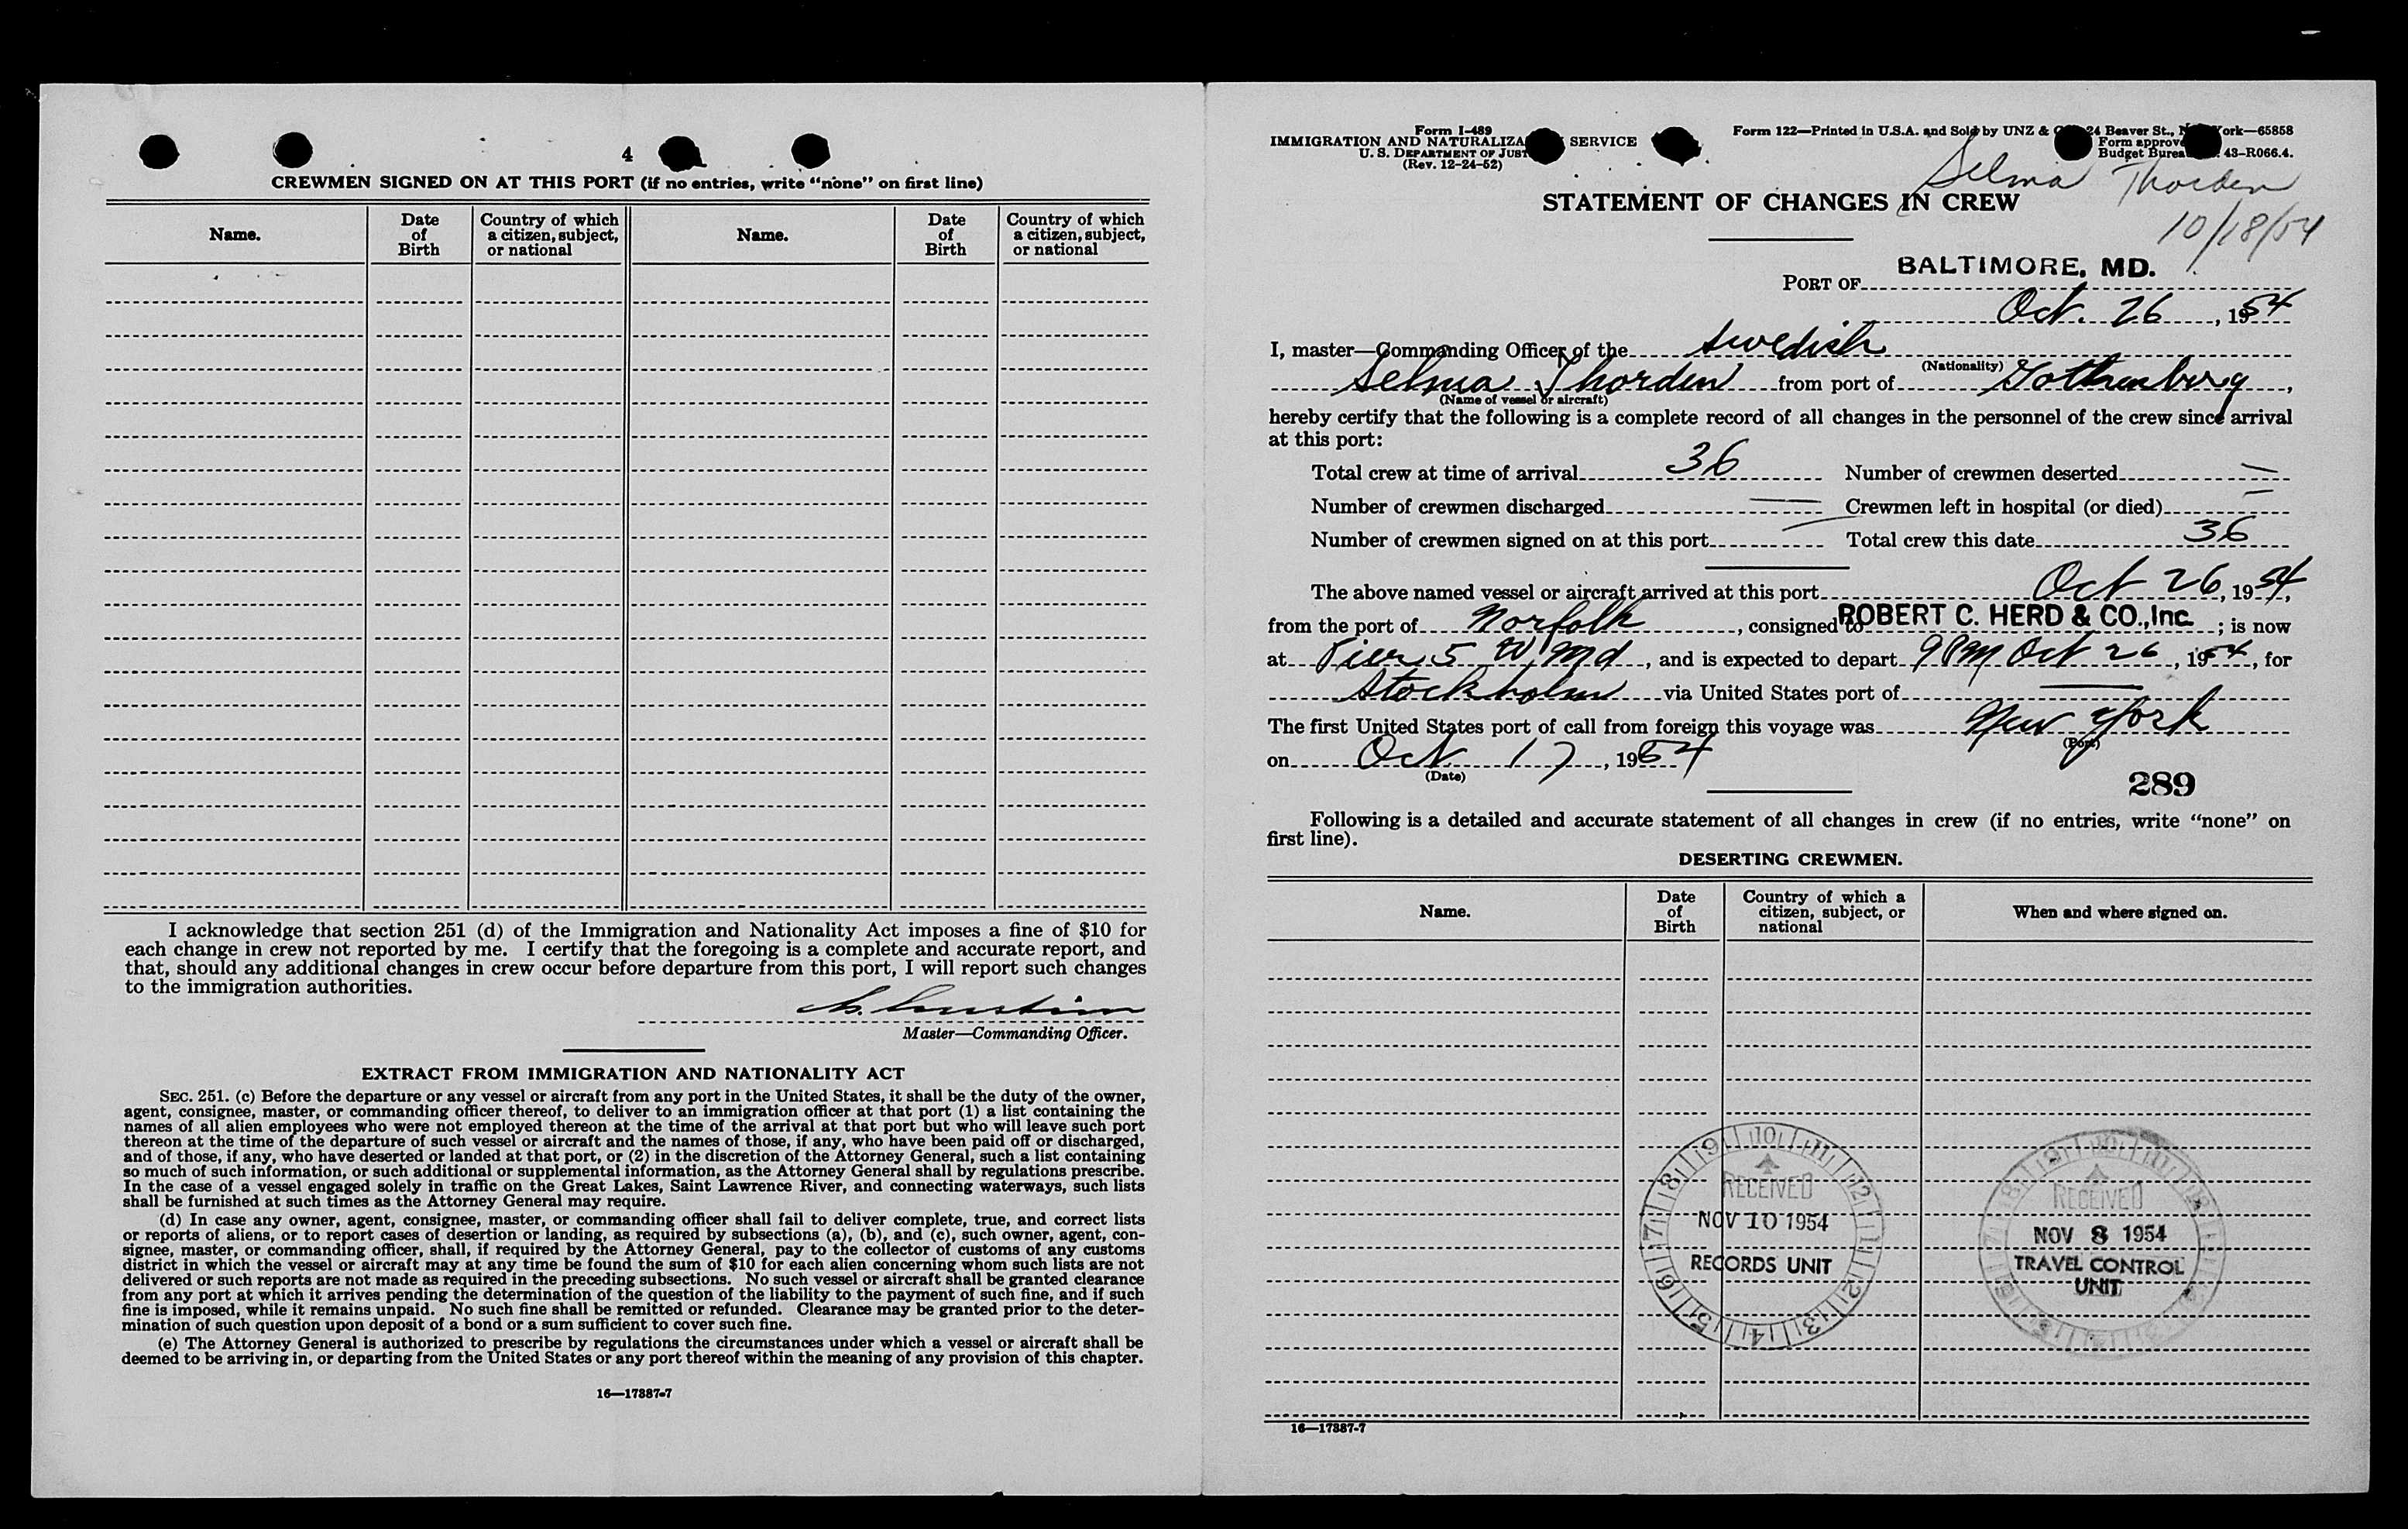 4
CREWMEN SIGNED ON AT THIS PORT (if no entries, write “none” on first line)
Name. Date of Birth Country of which a citizen, subject, or national Name. Date of Birth Country of which a citizen, subject, or national
I acknowledge that section 251 (d) of the Immigration and Nationality Act imposes a fine of $10 for
each change in crew not reported by me. I certify that the foregoing is a complete and accurate report, and
that, should any additional changes in crew occur before departure from this port, I will report such changes
to the immigration authorities.
Master—Commanding Officer.
EXTRACT FROM IMMIGRATION AND NATIONALITY ACT
SEC. 251. (c) Before the departure or any vessel or aircraft from any port in the United States, it shall be the duty of the owner,
agent, consignee, master, or commanding officer thereof, to deliver to an immigration officer at that port (1) a list containing the
names of all alien employees who were not employed thereon at the time of the arrival at that port but who will leave such port
thereon at the time of the departure of such vessel or aircraft and the names of those, if any, who have been paid off or discharged,
and of those, if any, who have deserted or landed at that port, or (2) in the discretion of the Attorney General, such a list containing
so much of such information, or such additional or supplemental information, as the Attorney General shall by regulations prescribe.
In the case of a vessel engaged solely in traffic on the Great Lakes, Saint Lawrence River, and connecting waterways, such lists
shall be furnished at such times as the Attorney General may require.
(d) In case any owner, agent, consignee, master, or commanding officer shall fail to deliver complete, true, and correct lists
or reports of aliens, or to report cases of desertion or landing, as required by subsections (a), (b), and (c), such owner, agent, con-
signee, master, or commanding officer, shall, if required by the Attorney General, pay to the collector of customs of any customs
district in which the vessel or aircraft may at any time be found the sum of $10 for each alien concerning whom such lists are not
delivered or such reports are not made as required in the preceding subsections. No such vessel or aircraft shall be granted clearance
from any port at which it arrives pending the determination of the question of the liability to the payment of such fine, and if such
fine is imposed, while it remains unpaid. No such fine shall be remitted or refunded. Clearance may be granted prior to the deter-
mination of such question upon deposit of a bond or a sum sufficient to cover such fine.
(e) The Attorney General is authorized to prescribe by regulations the circumstances under which a vessel or aircraft shall be
deemed to be arriving in, or departing from the United States or any port thereof within the meaning of any provision of this chapter.
16—17887-7
Form I-489
IMMIGRATION AND NATURALIZA SERVICE
U. S. DEPARTMENT OF JUST
(Rev. 12-24-52)
Form 122—Printed in U.S.A. and Sold by UNZ & 24 Beaver St., ork—65858
Form approve
Budget Burea 43-R066.4.
Selma Thorden
10/18/54
STATEMENT OF CHANGES IN CREW
PORT OF BALTIMORE, MD.
Oct. 26, 1954
I, master—Commanding Officer of the Swedish
(Nationality)
Selma Thorden from port of Gothenburg,
(Name of vessel or aircraft)
hereby certify that the following is a complete record of all changes in the personnel of the crew since arrival
at this port:
Total crew at time of arrival 36 Number of crewmen deserted —
Number of crewmen discharged — Crewmen left in hospital (or died) —
Number of crewmen signed on at this port — Total crew this date 36
The above named vessel or aircraft arrived at this port Oct 26, 1954,
from the port of Norfolk, consigned to ROBERT C. HERD & CO., Inc.; is now
at Pier 5 W Md, and is expected to depart 9 PM Oct 26, 1954, for
Stockholm via United States port of —
The first United States port of call from foreign this voyage was New York
(Port)
on Oct 17, 1954
(Date)
289
Following is a detailed and accurate statement of all changes in crew (if no entries, write “none” on
first line).
DESERTING CREWMEN.
Name. Date of Birth Country of which a citizen, subject, or national When and where signed on.
RECEIVED
NOV 10 1954
RECORDS UNIT
RECEIVED
NOV 8 1954
TRAVEL CONTROL
UNIT
16—17887-7